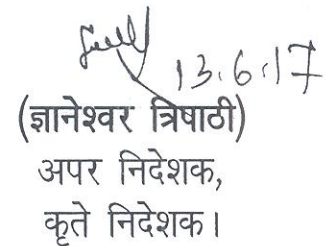 13.6.17
(ज्ञानेश्वर त्रिपाठी)
अपर निदेशक,
कृते निदेशक।